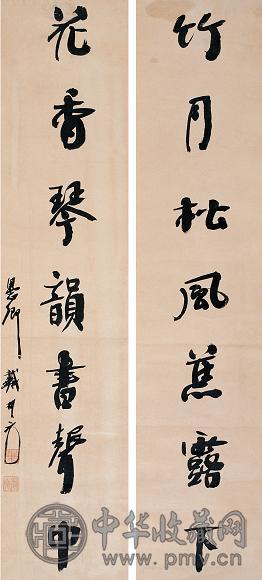 竹月松風蕉露下
花香琴韻書聲中
卿 戴
中华收藏网
www.pmy.cn